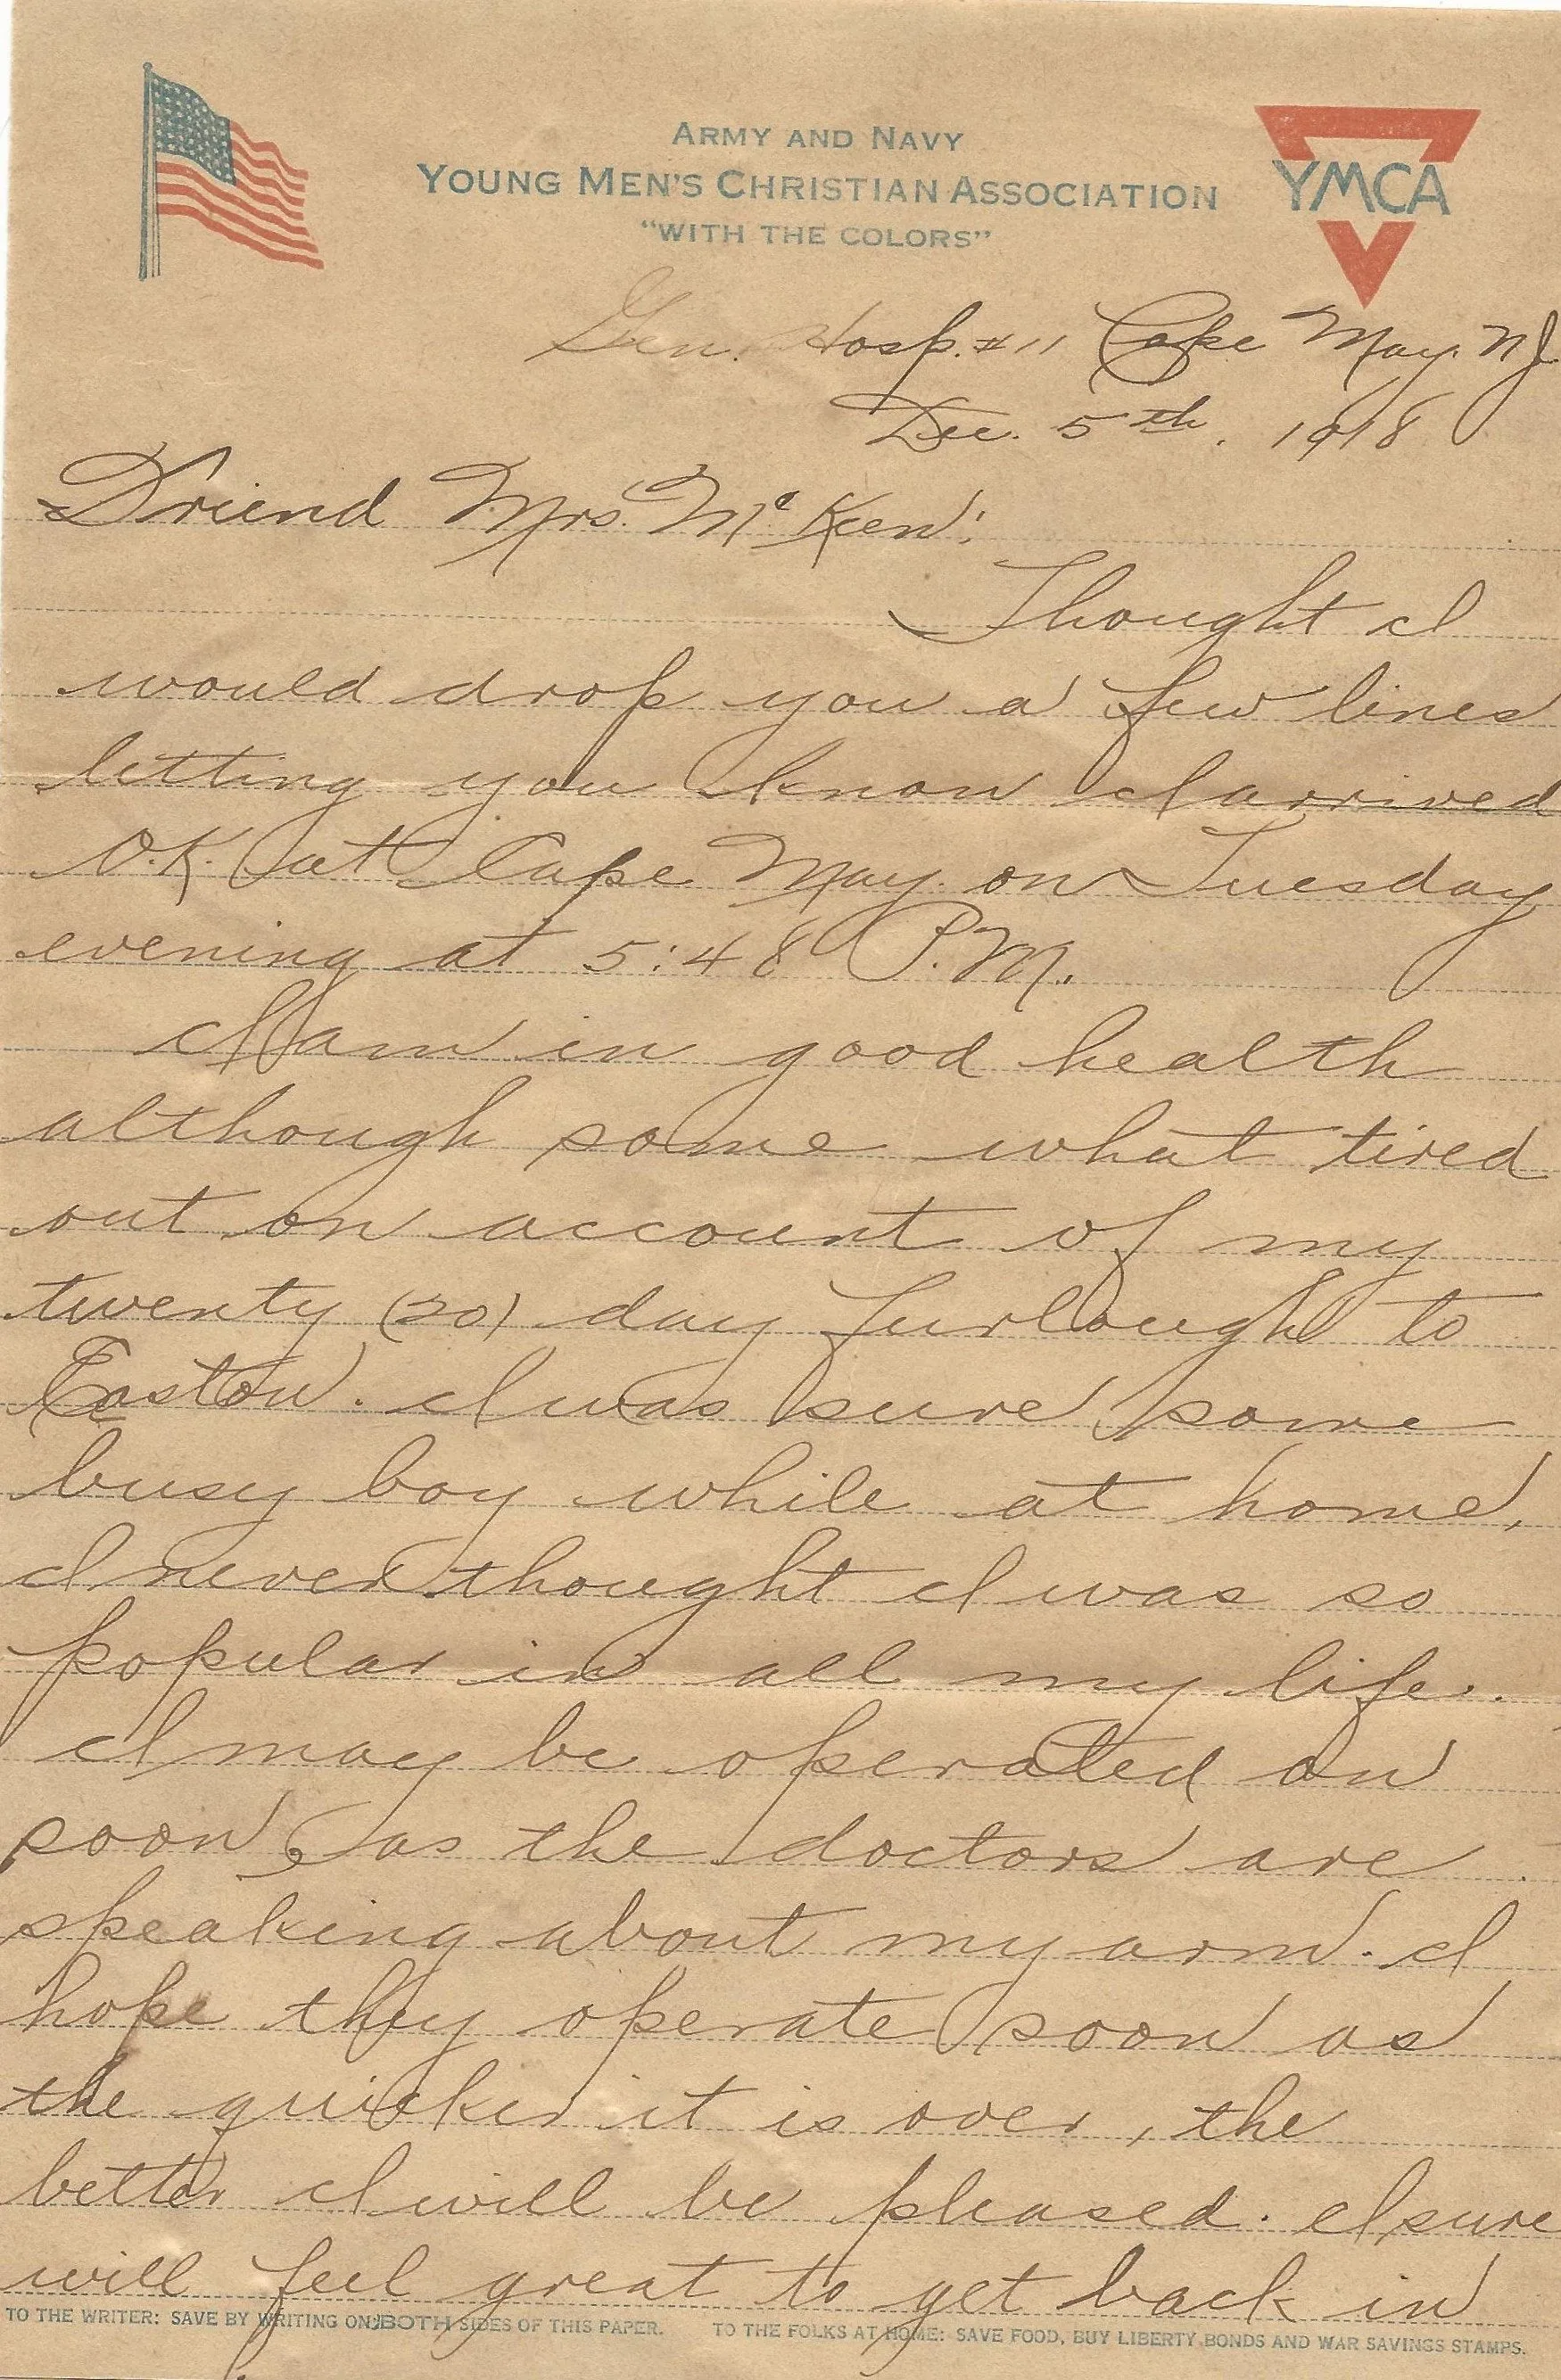 ARMY AND NAVY
YOUNG MEN'S CHRISTIAN ASSOCIATION
"WITH THE COLORS"
YMCA
Gen. Hosp. #11 Cape May. N.J.
Dec. 5th. 1918
Friend Mrs. McKeen:
Thought I
would drop you a few lines
letting you know I arrived
O.K. at Cape May. on Tuesday
evening at 5:48 P.M.
I am in good health
although some what tired
out on account of my
twenty (20) day furlough to
Easton. I was sure some
busy boy while at home,
I never thought I was so
popular in all my life.
I may be operated on
soon, as the doctors are
speaking about my arm. I
hope they operate soon as
the quicker it is over, the
better I will be pleased. I sure
will feel great to get back in
TO THE WRITER: SAVE BY WRITING ON BOTH SIDES OF THIS PAPER. TO THE FOLKS AT HOME: SAVE FOOD, BUY LIBERTY BONDS AND WAR SAVINGS STAMPS.